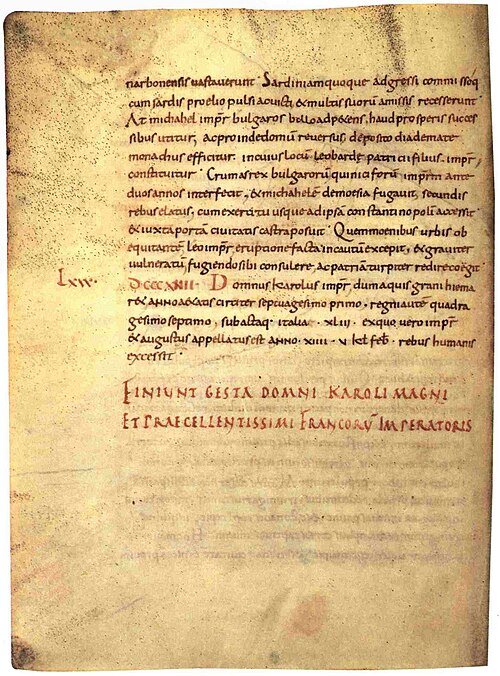 narbonensi uastauerunt Sardiniam quoque adgressi commissoq
cum sardis proelio pulsi ac uicti, & multis suorū amissis recesserunt
At michahel impr̄ bulgaros bello adp&ens, haud prosperis succes
sibus utitur, ac proinde domū reuersus, deposito diademate
monachus efficitur. in cuius locū leo bardę patricii filius, impr̄
constituitur. Crumas rex bulgarorū qui niciforū impr̄m ante
duos annos interfecit, & michahelē de moesia fugauit, secundis
rebus elatus, cum exercitu usque ad ipsā constantinopolī accessit
& iuxta portā ciuitatis castra posuit. Quem moenibus urbis ob
equitantē leo impr̄ eruptione facta incautū excepit, & grauiter
uulneratū fugiendo sibi consulere, ac patriā turpiter redire coegit
Lxx. DCCCXIIII. Domnus Karolus impr̄, dum aquis grani hiema
r& anno aetatis circiter septuagesimo primo, regni autē quadra
gesimo septimo, subactaq. italia. XLIII. ex quo uero impr̄
& augustus appellatus est anno. XIIII. V kl̄ feb̄. rebus humanis
excessit.
FINIUNT GESTA DOMNI KAROLI MAGNI
ET PRAECELLENTISSIMI FRANCORŪ IMPERATORIS